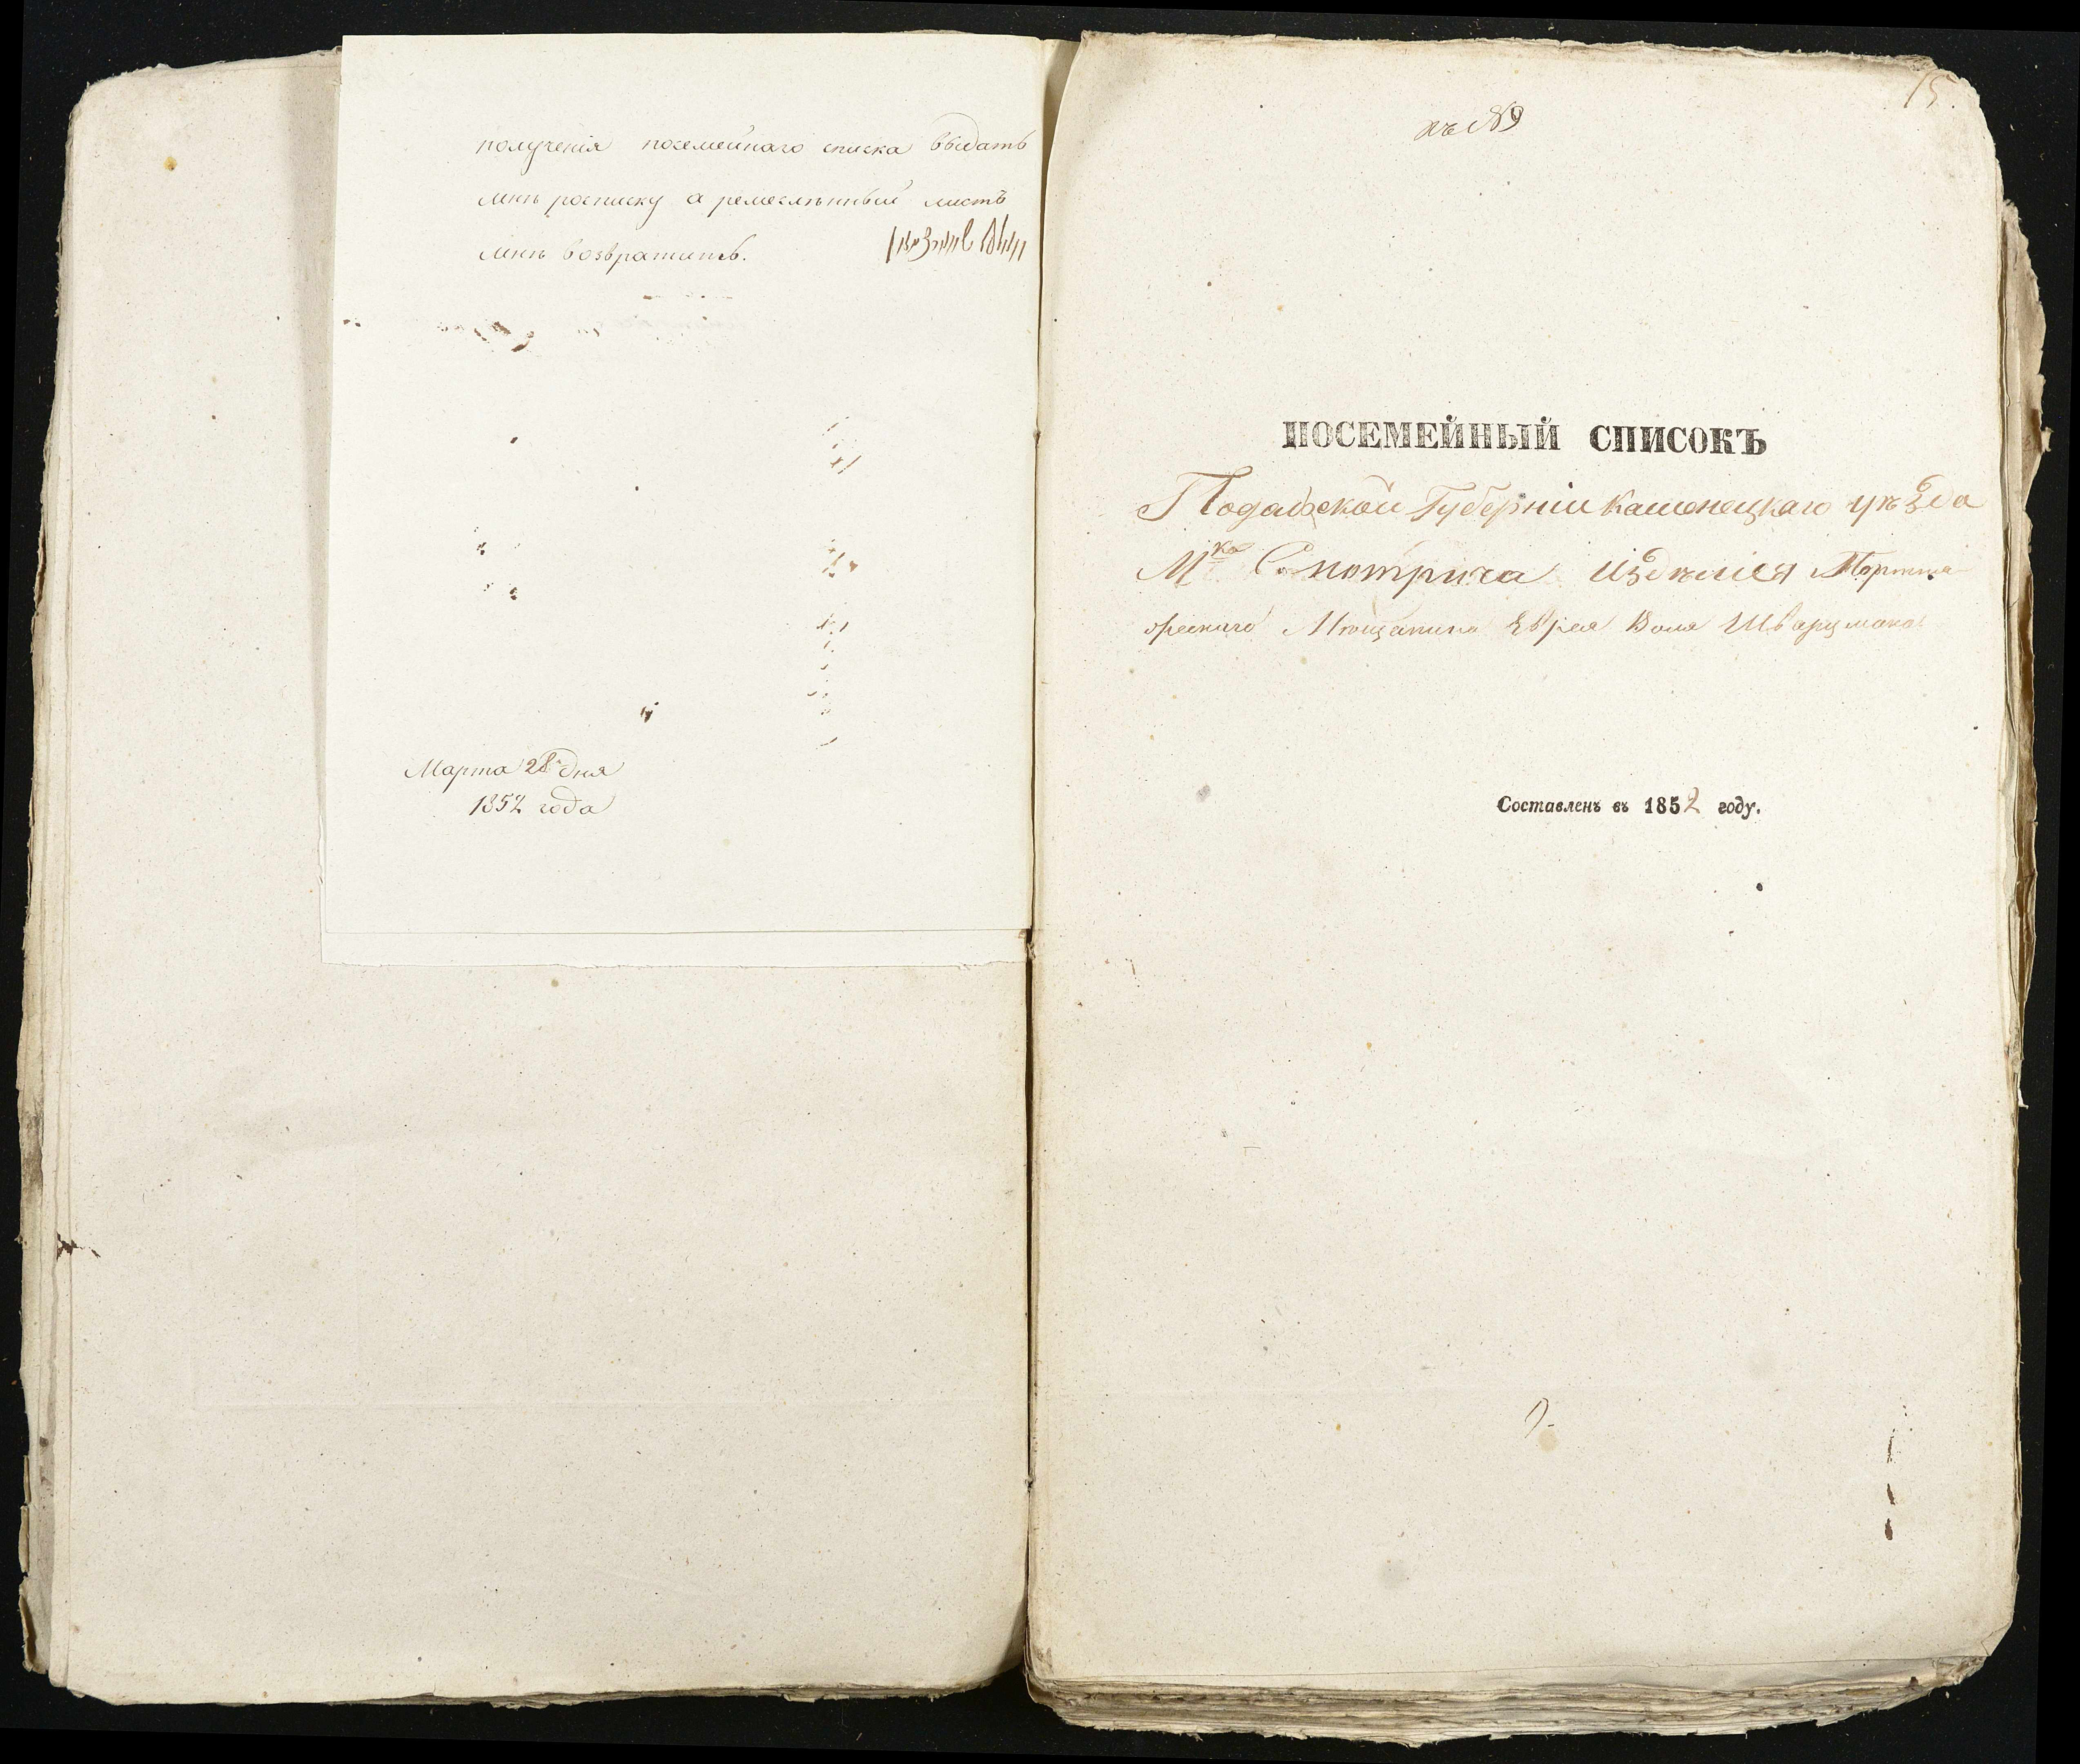 полученія посемейнаго списка выдать
мнѣ росписку а ремеслѣнный листъ
мнѣ возвратить.
Марта 28 дня
1852 года
15.
къ №9
ПОСЕМЕЙНЫЙ СПИСОКЪ
Подольской Губерніи Каменецкаго уѣзда
М<sup>ка</sup> Смотрича издѣлія Портня-
жескаго Мѣщанина Еврея Воля Шварцмана
Составленъ въ 1852 году.